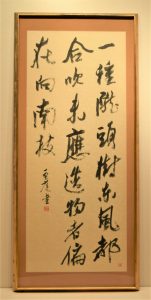 一種隴頭樹東風都
合吹未應造物者偏
在向南枝